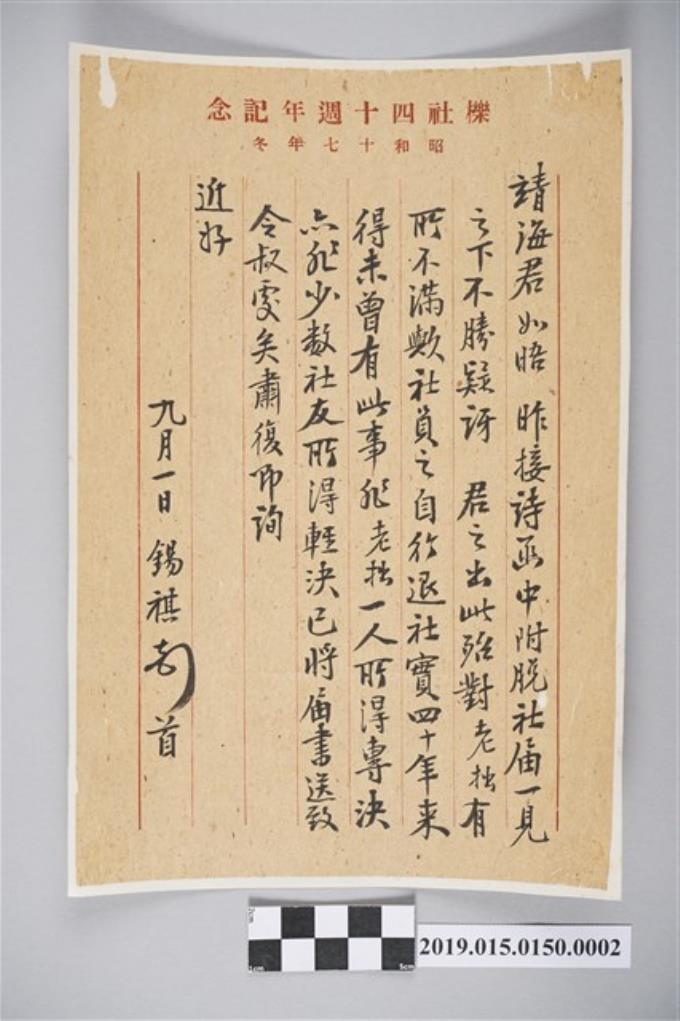 櫟社四十週年記念
昭和十七年冬
靖海君如晤 昨接詩函中附脫社届一見
之下不勝疑訝 君之出此殆對老拙有
所不滿歟社員之自行退社實四十年来
得未曾有此事非老拙一人所得專決
亦非少数社友所得輕決已將届書送致
令叔處矣肅復即詢
近好
九月一日 錫祺 首
2cm
1cm
5cm
2019.015.0150.0002